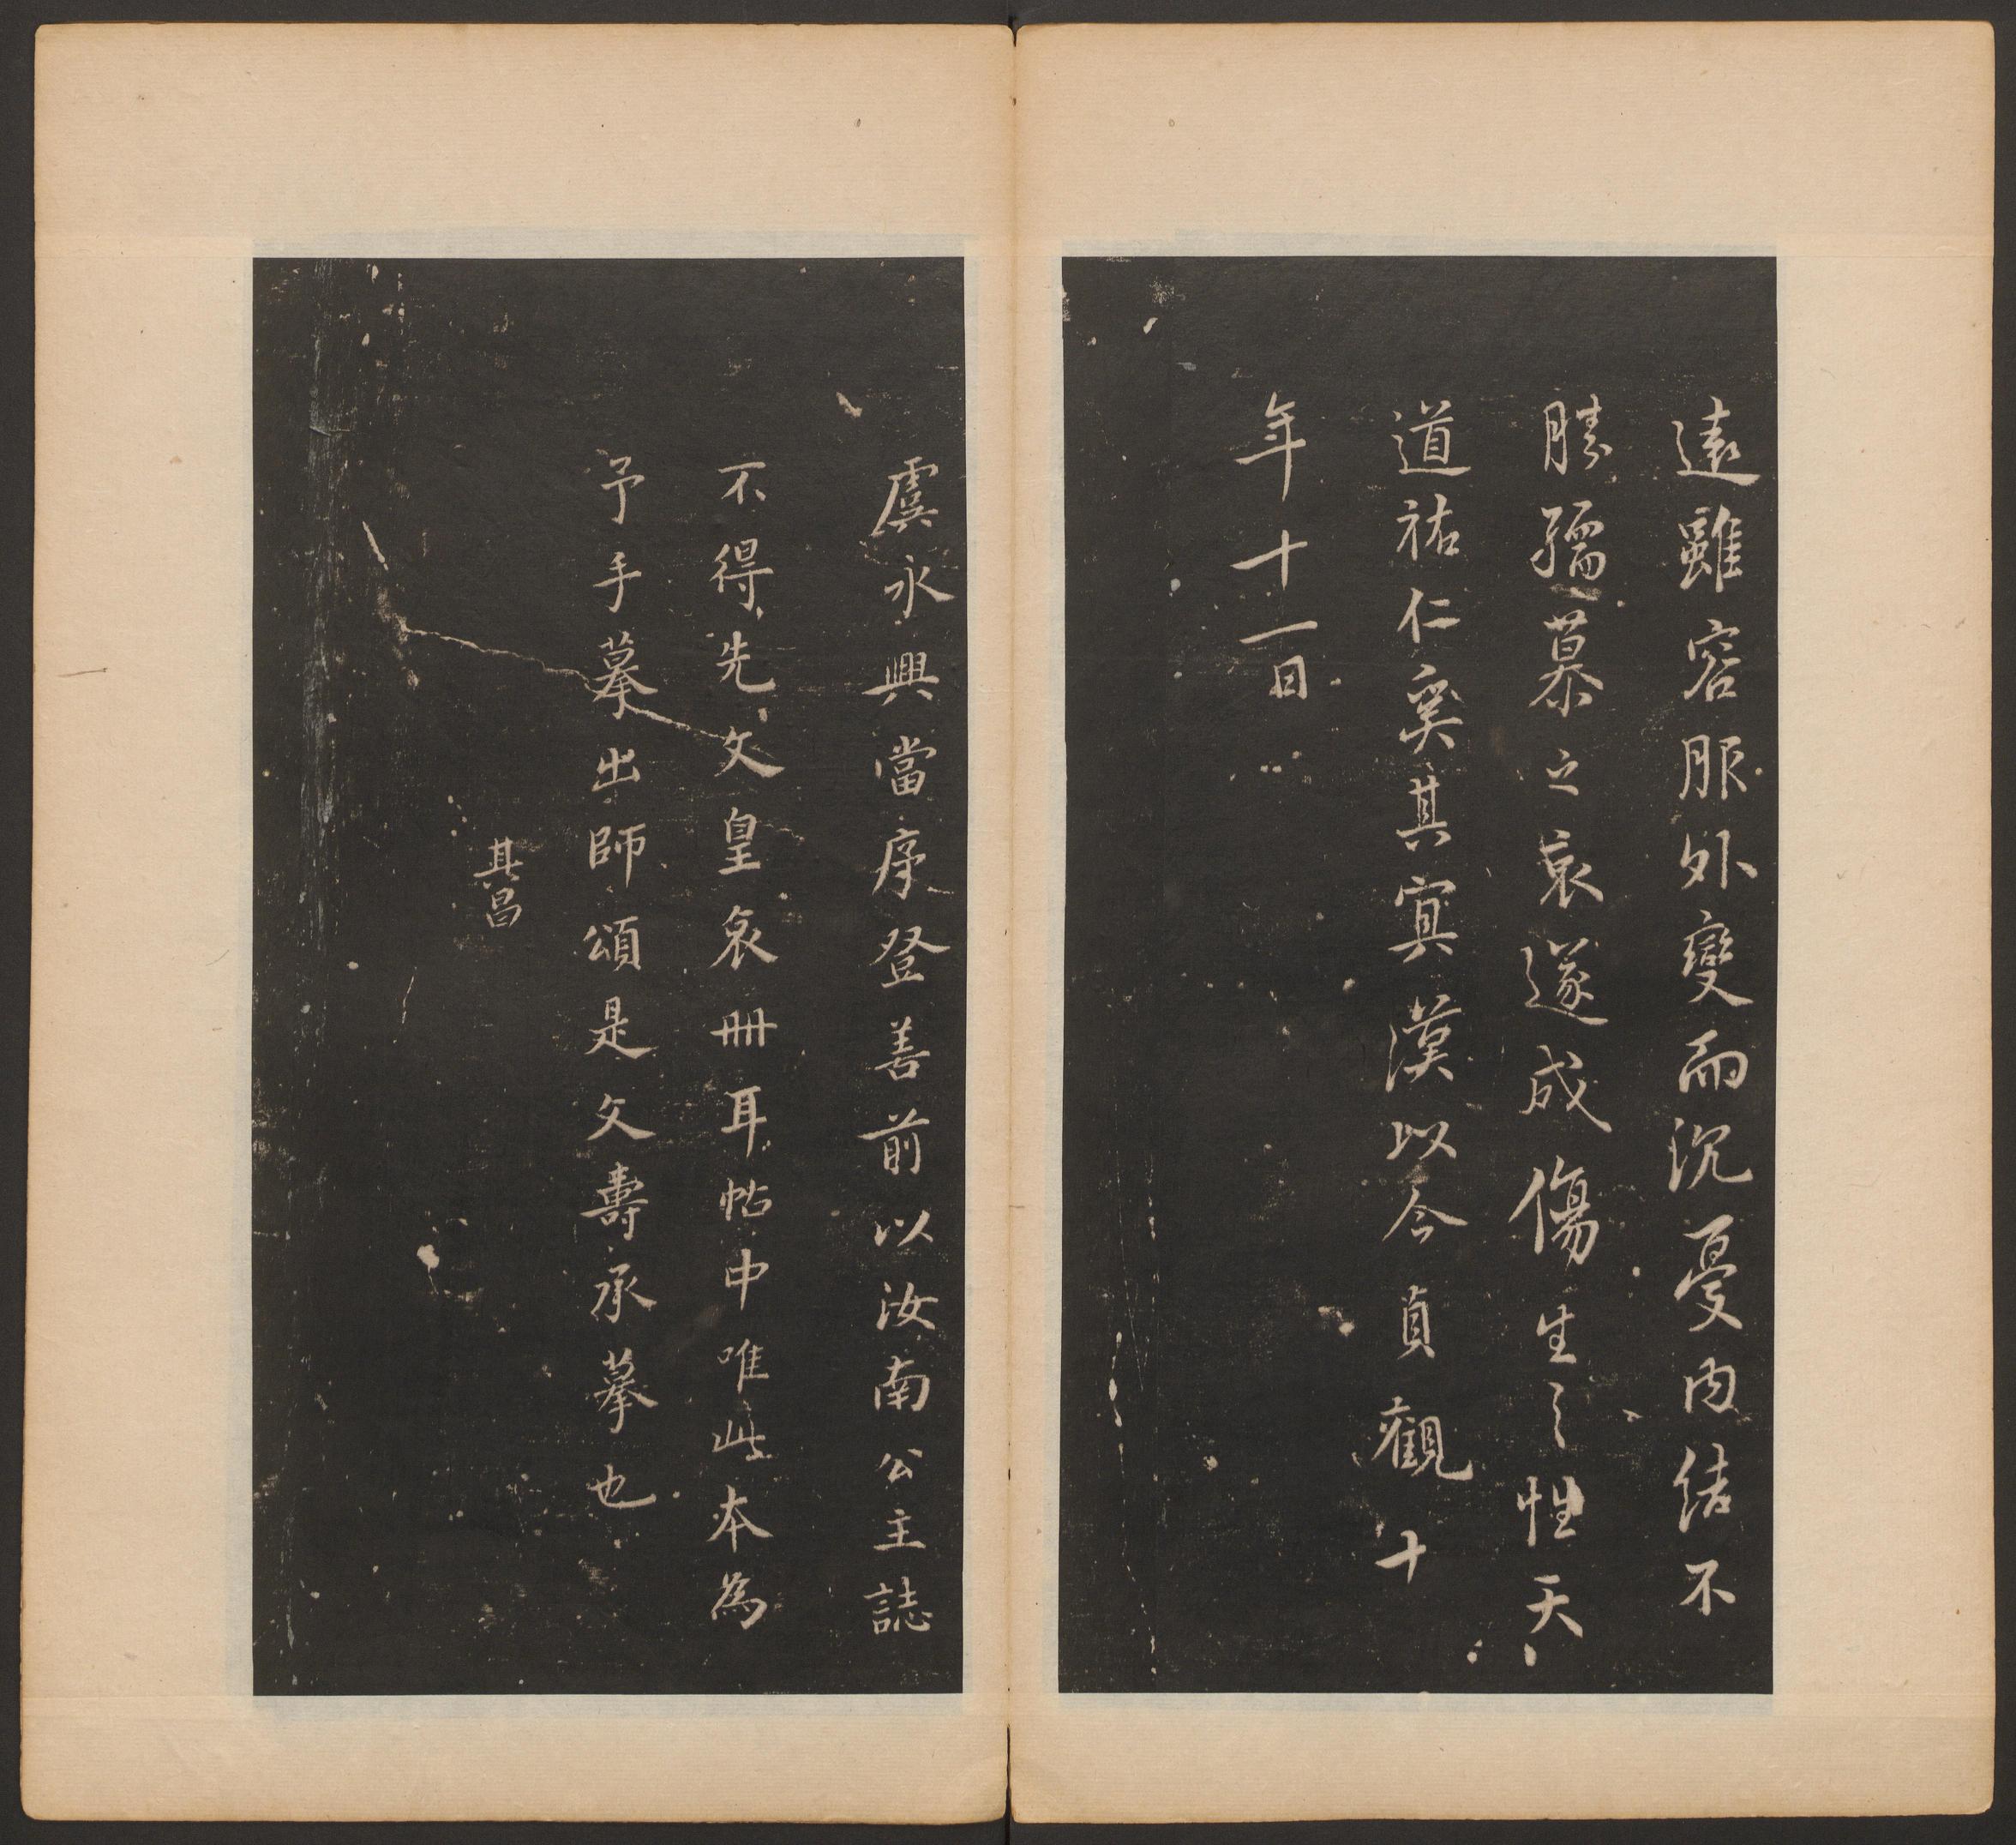 遠雖容服外變而沉憂内結不
勝孺慕之哀遂成傷生之性天
道祐仁奚其冥漠以今貞觀十
年十一日
虞永興當序登善前以汝南公主誌
不得先文皇哀冊耳帖中唯此本為
予手摹出師頌是文壽承摹也
其昌